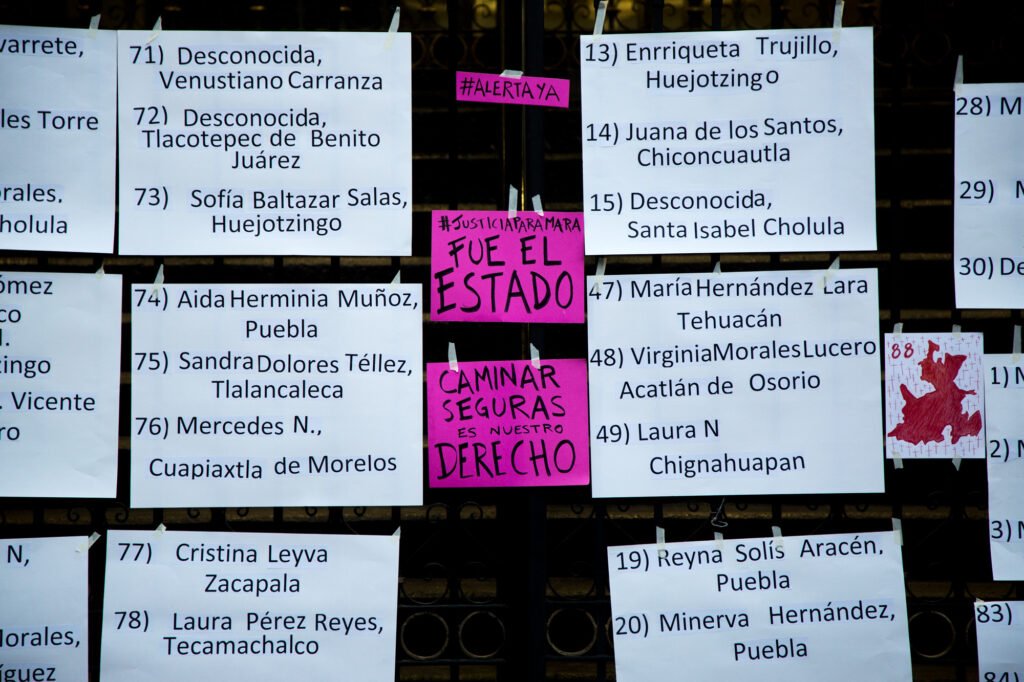 varrete,
les Torre
orales.
holula
71) Desconocida,
Venustiano Carranza
72) Desconocida,
Tlacotepec de Benito
Juárez
73) Sofía Baltazar Salas,
Huejotzingo
#ALERTAYA
#JUSTICIAPARAMARA
FUE EL
ESTADO
CAMINAR
SEGURAS
ES NUESTRO
DERECHO
13) Enrriqueta Trujillo,
Huejotzingo
14) Juana de los Santos,
Chiconcuautla
15) Desconocida,
Santa Isabel Cholula
28) M
29) M
30) De
ómez
co
zingo
. Vicente
ro
74) Aida Herminia Muñoz,
Puebla
75) Sandra Dolores Téllez,
Tlalancaleca
76) Mercedes N.,
Cuapiaxtla de Morelos
47) María Hernández Lara
Tehuacán
48) Virginia Morales Lucero
Acatlán de Osorio
49) Laura N
Chignahuapan
88
1) M
2) M
3) M
N,
Morales,
íguez
77) Cristina Leyva
Zacapala
78) Laura Pérez Reyes,
Tecamachalco
19) Reyna Solís Aracén,
Puebla
20) Minerva Hernández,
Puebla
83)
84)